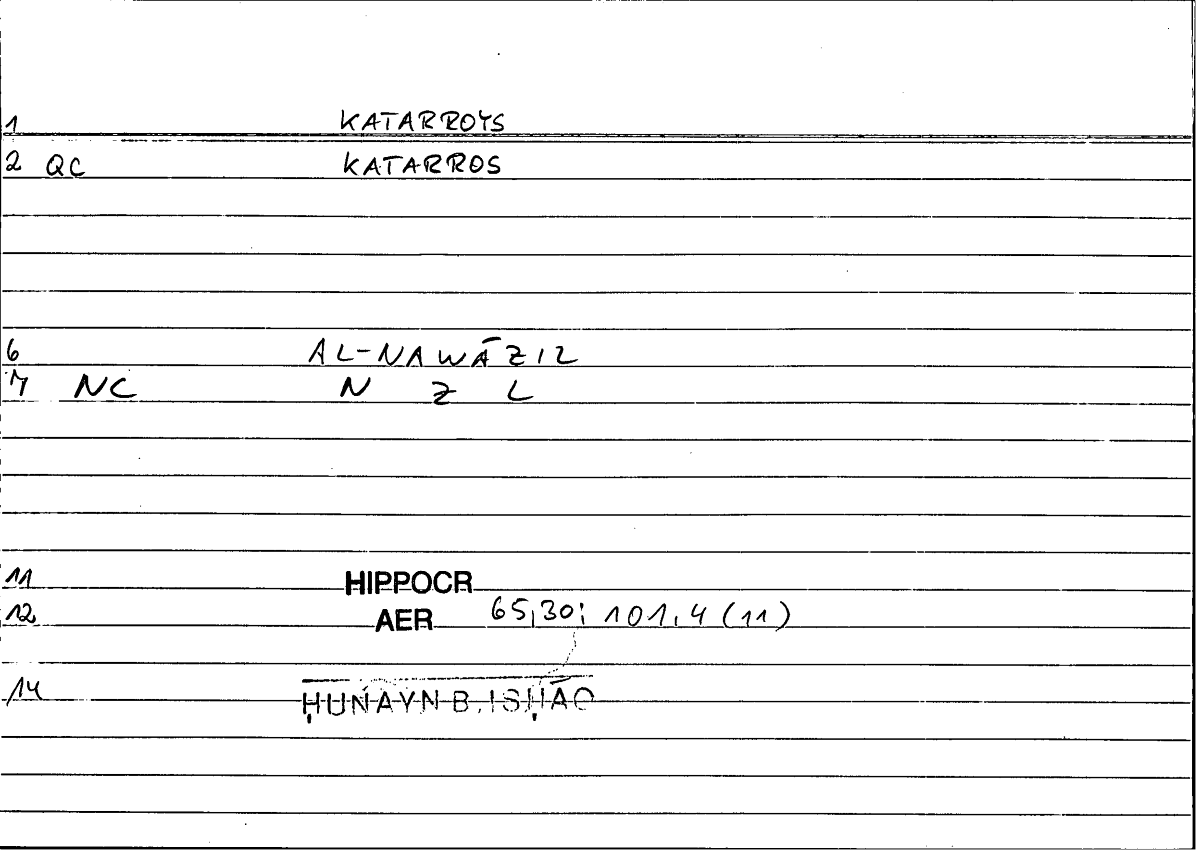 1 KATARROYS
2 QC KATARROS
6 AL-NAWĀZIL
7 NC N Z L
11 HIPPOCR
12 AER 65,30; 101,4 (11)
14 ḤUNAYN B. ISḤĀQ